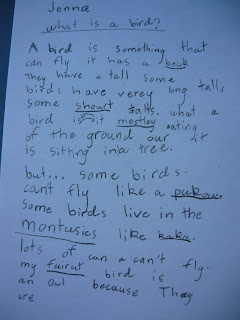 Jenna
what is a bird?
A bird is something that
can fly it has a beck
They have a tall some
birds have verey long talls
some shourt talls. what a
bird is it mostley eating
of the ground our it
is sitting in a tree.
but... some birds
can't fly like a pukaw
some birds live in the
montusies like kaka.
lots of can a can't fly.
my fairut bird is
an owl because They
are